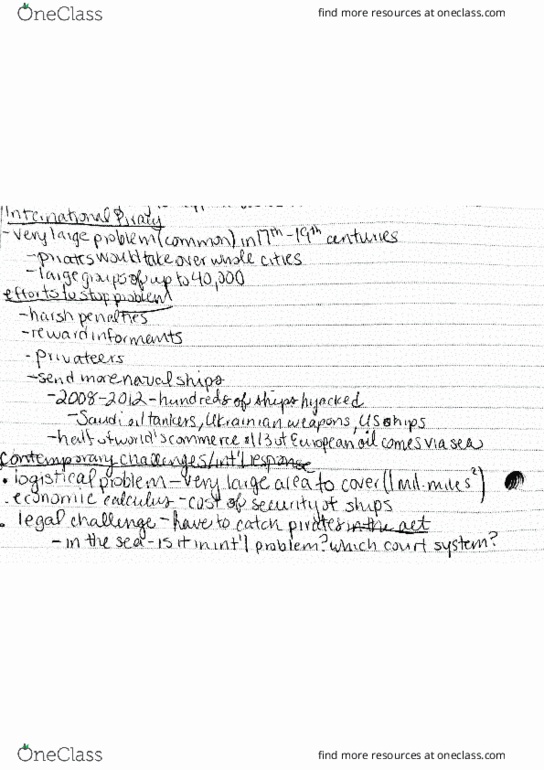 OneClass
find more resources at oneclass.com
International Piracy
-very large problem (common) in 17th-19th centuries
-pirates would take over whole cities
-large groups of up to 40,000
efforts to stop problem
-harsh penalties
-reward informents
-privateers
-send more naval ships
-2008-2012-hundreds of ships hijacked
-Saudi oil tankers, Ukrainian weapons, US ships
-half of world's commerce & 1/3 of European oil comes via sea
contemporary challenges/int'l response
• logistical problem-very large area to cover (1 mil. miles²)
• economic calculus-cost of security of ships
• legal challenge-have to catch pirates in the act
-in the sea-is it in int'l problem? which court system?
OneClass
find more resources at oneclass.com